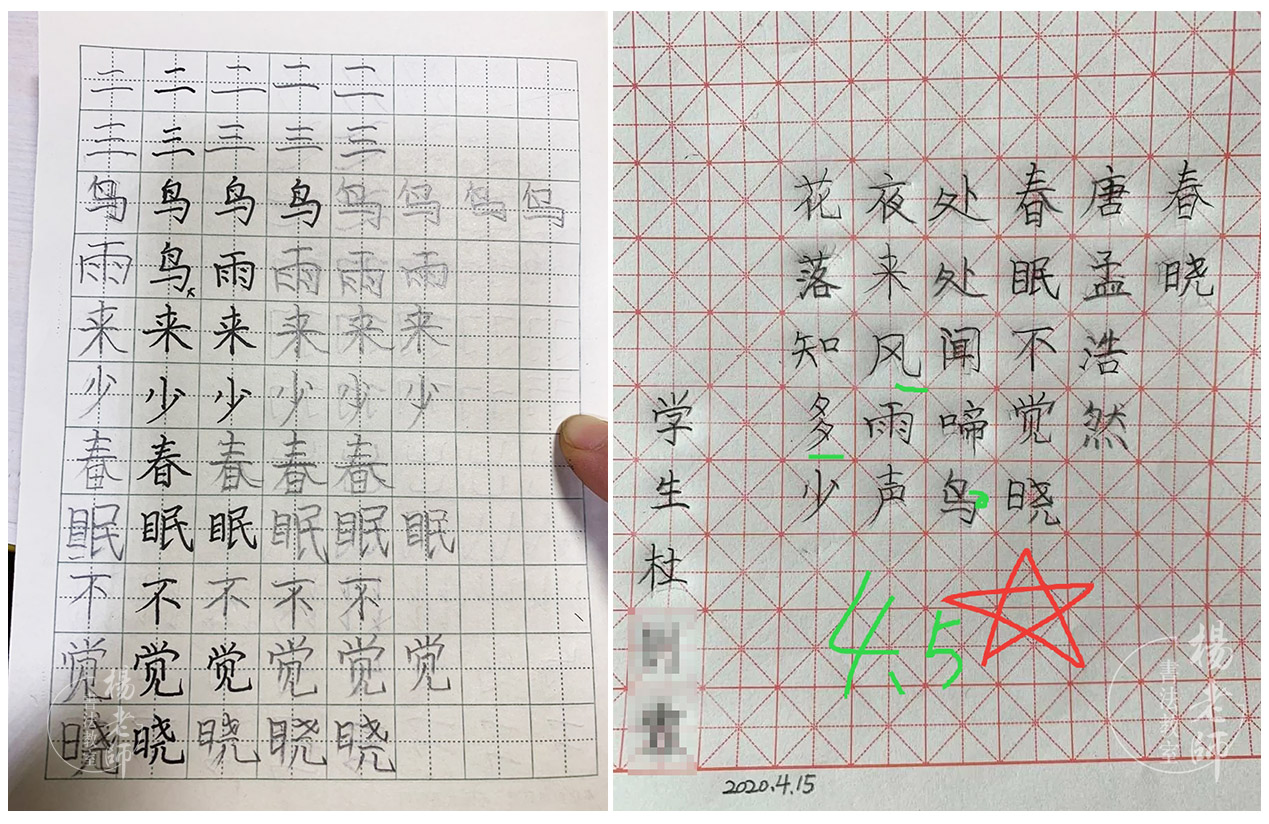 二二二二二
三三三三三
鸟鸟鸟鸟鸟鸟鸟鸟
雨鸟雨雨雨雨
来来来来来来
少少少少少少
春春春春春
眠眠眠眠眠眠
不不不不不
觉觉觉觉觉觉
晓晓晓晓晓
楊老師
書法教室
春晓
唐孟浩然
春眠不觉晓
处处闻啼鸟
夜来风雨声
花落知多少
学生杜
4.5
2020.4.15
楊老師
書法教室